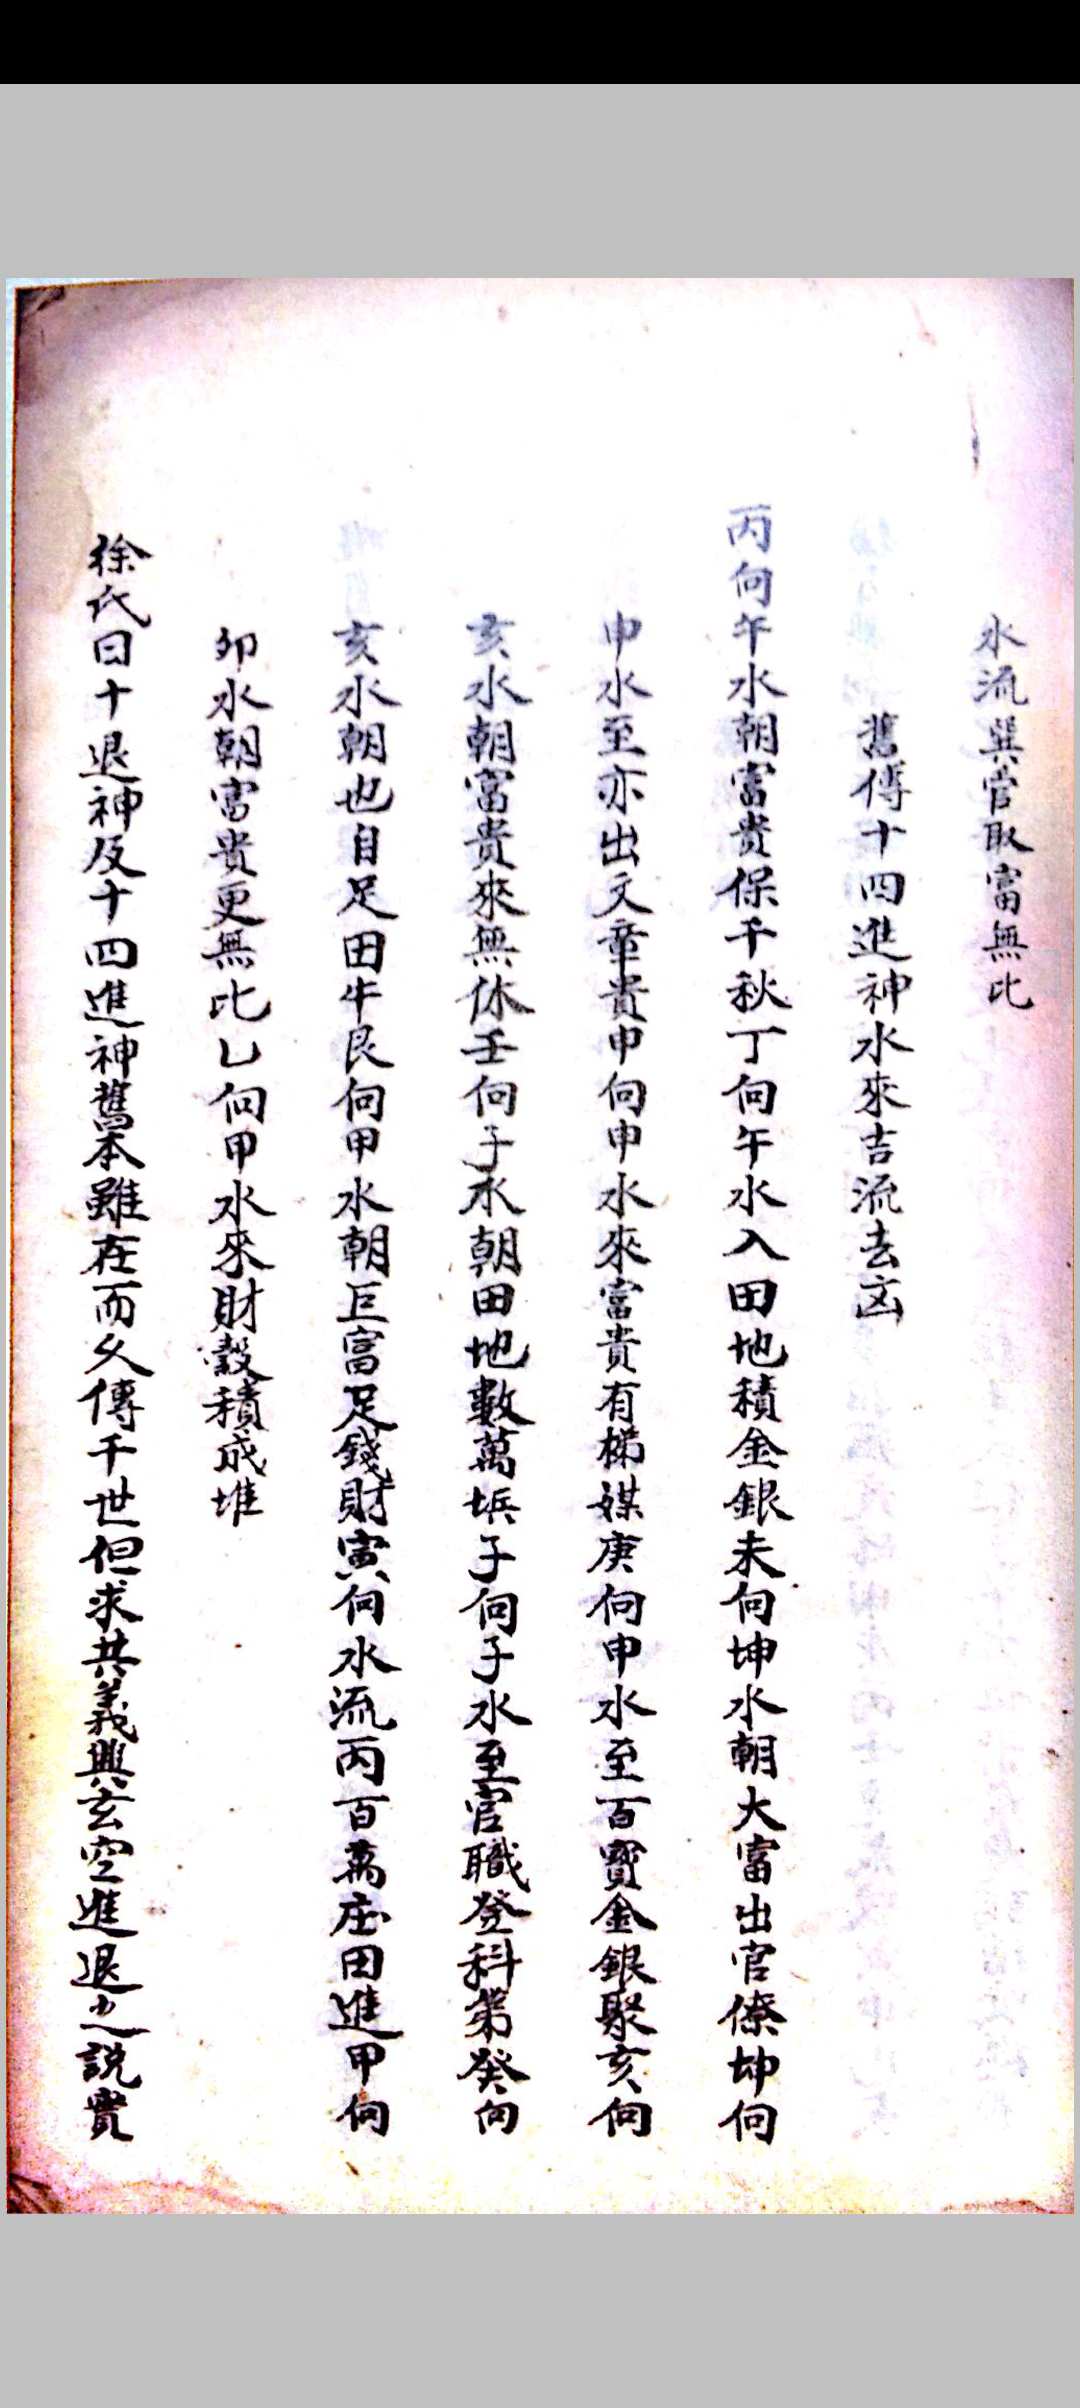 水流巽官取富無比
舊傳十四進神水來吉流去凶
丙向午水朝富貴保千秋丁向午水入田地積金銀未向坤水朝大富出官僚坤向
申水至亦出文章貴申向申水來富貴有梯媒庚向申水至百寶金銀聚亥向
亥水朝富貴來無休壬向子水朝田地數萬坵子向子水至官職登科第癸向
亥水朝也自足田牛艮向甲水朝巨富足錢財寅向水流丙百萬庄田進甲向
卯水朝富貴更無比乙向甲水來財穀積成堆
徐氏曰十退神及十四進神舊本雖在而久傳千世但求其義與玄空進退之説實